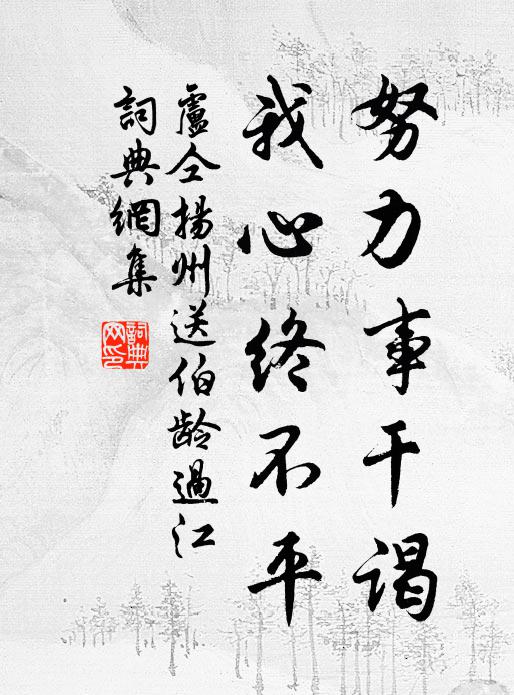 努力事干谒
我心终不平
盧仝揚州送伯龄過江
詞典網集
詞典网印